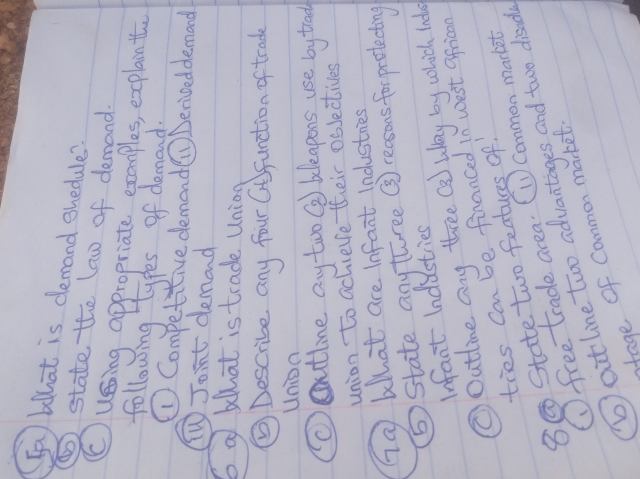 5a What is demand shedule?
b State the law of demand.
c Using appropriate examples, explain the
following types of demand.
i Competitive demand ii Derived demand
iii Joint demand
6 a What is trade union
b Describe any four (4) function of trade
union
c Outline any two (2) weapons use by trade
union to achieve their objectives
7a What are Infant Industries
b State any three (3) reasons for protecting
Infant Industies
c Outline any three (3) way by which Indus
tries can be financed in west African
8 a State two features of:
i free trade area. ii Common market
b Outline two advantages and two disadv
of common market.